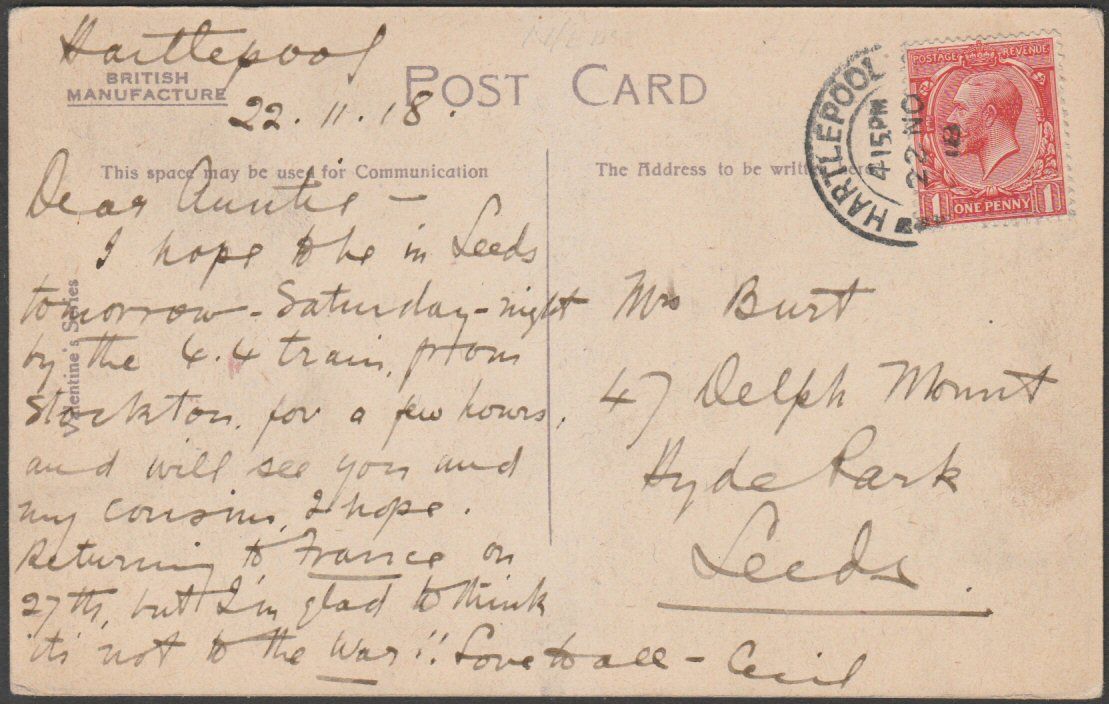 Hartlepool
BRITISH
MANUFACTURE
POST CARD
22.11.18.
This space may be used for Communication
The Address to be written here
Dear Auntie -
I hope to be in Leeds
tomorrow - Saturday - night
by the 4.4 train, from
Stockton, for a few hours,
and will see you and
my cousins, I hope.
Returning to France on
27th, but I'm glad to think
it's not to the War!! Love to all - Cecil
Valentine's Series
Mrs Burt
47 Delph Mount
Hyde Park
Leeds.
HARTLEPOOL
4.15 PM
22 NO
18
POSTAGE REVENUE
1 ONE PENNY 1